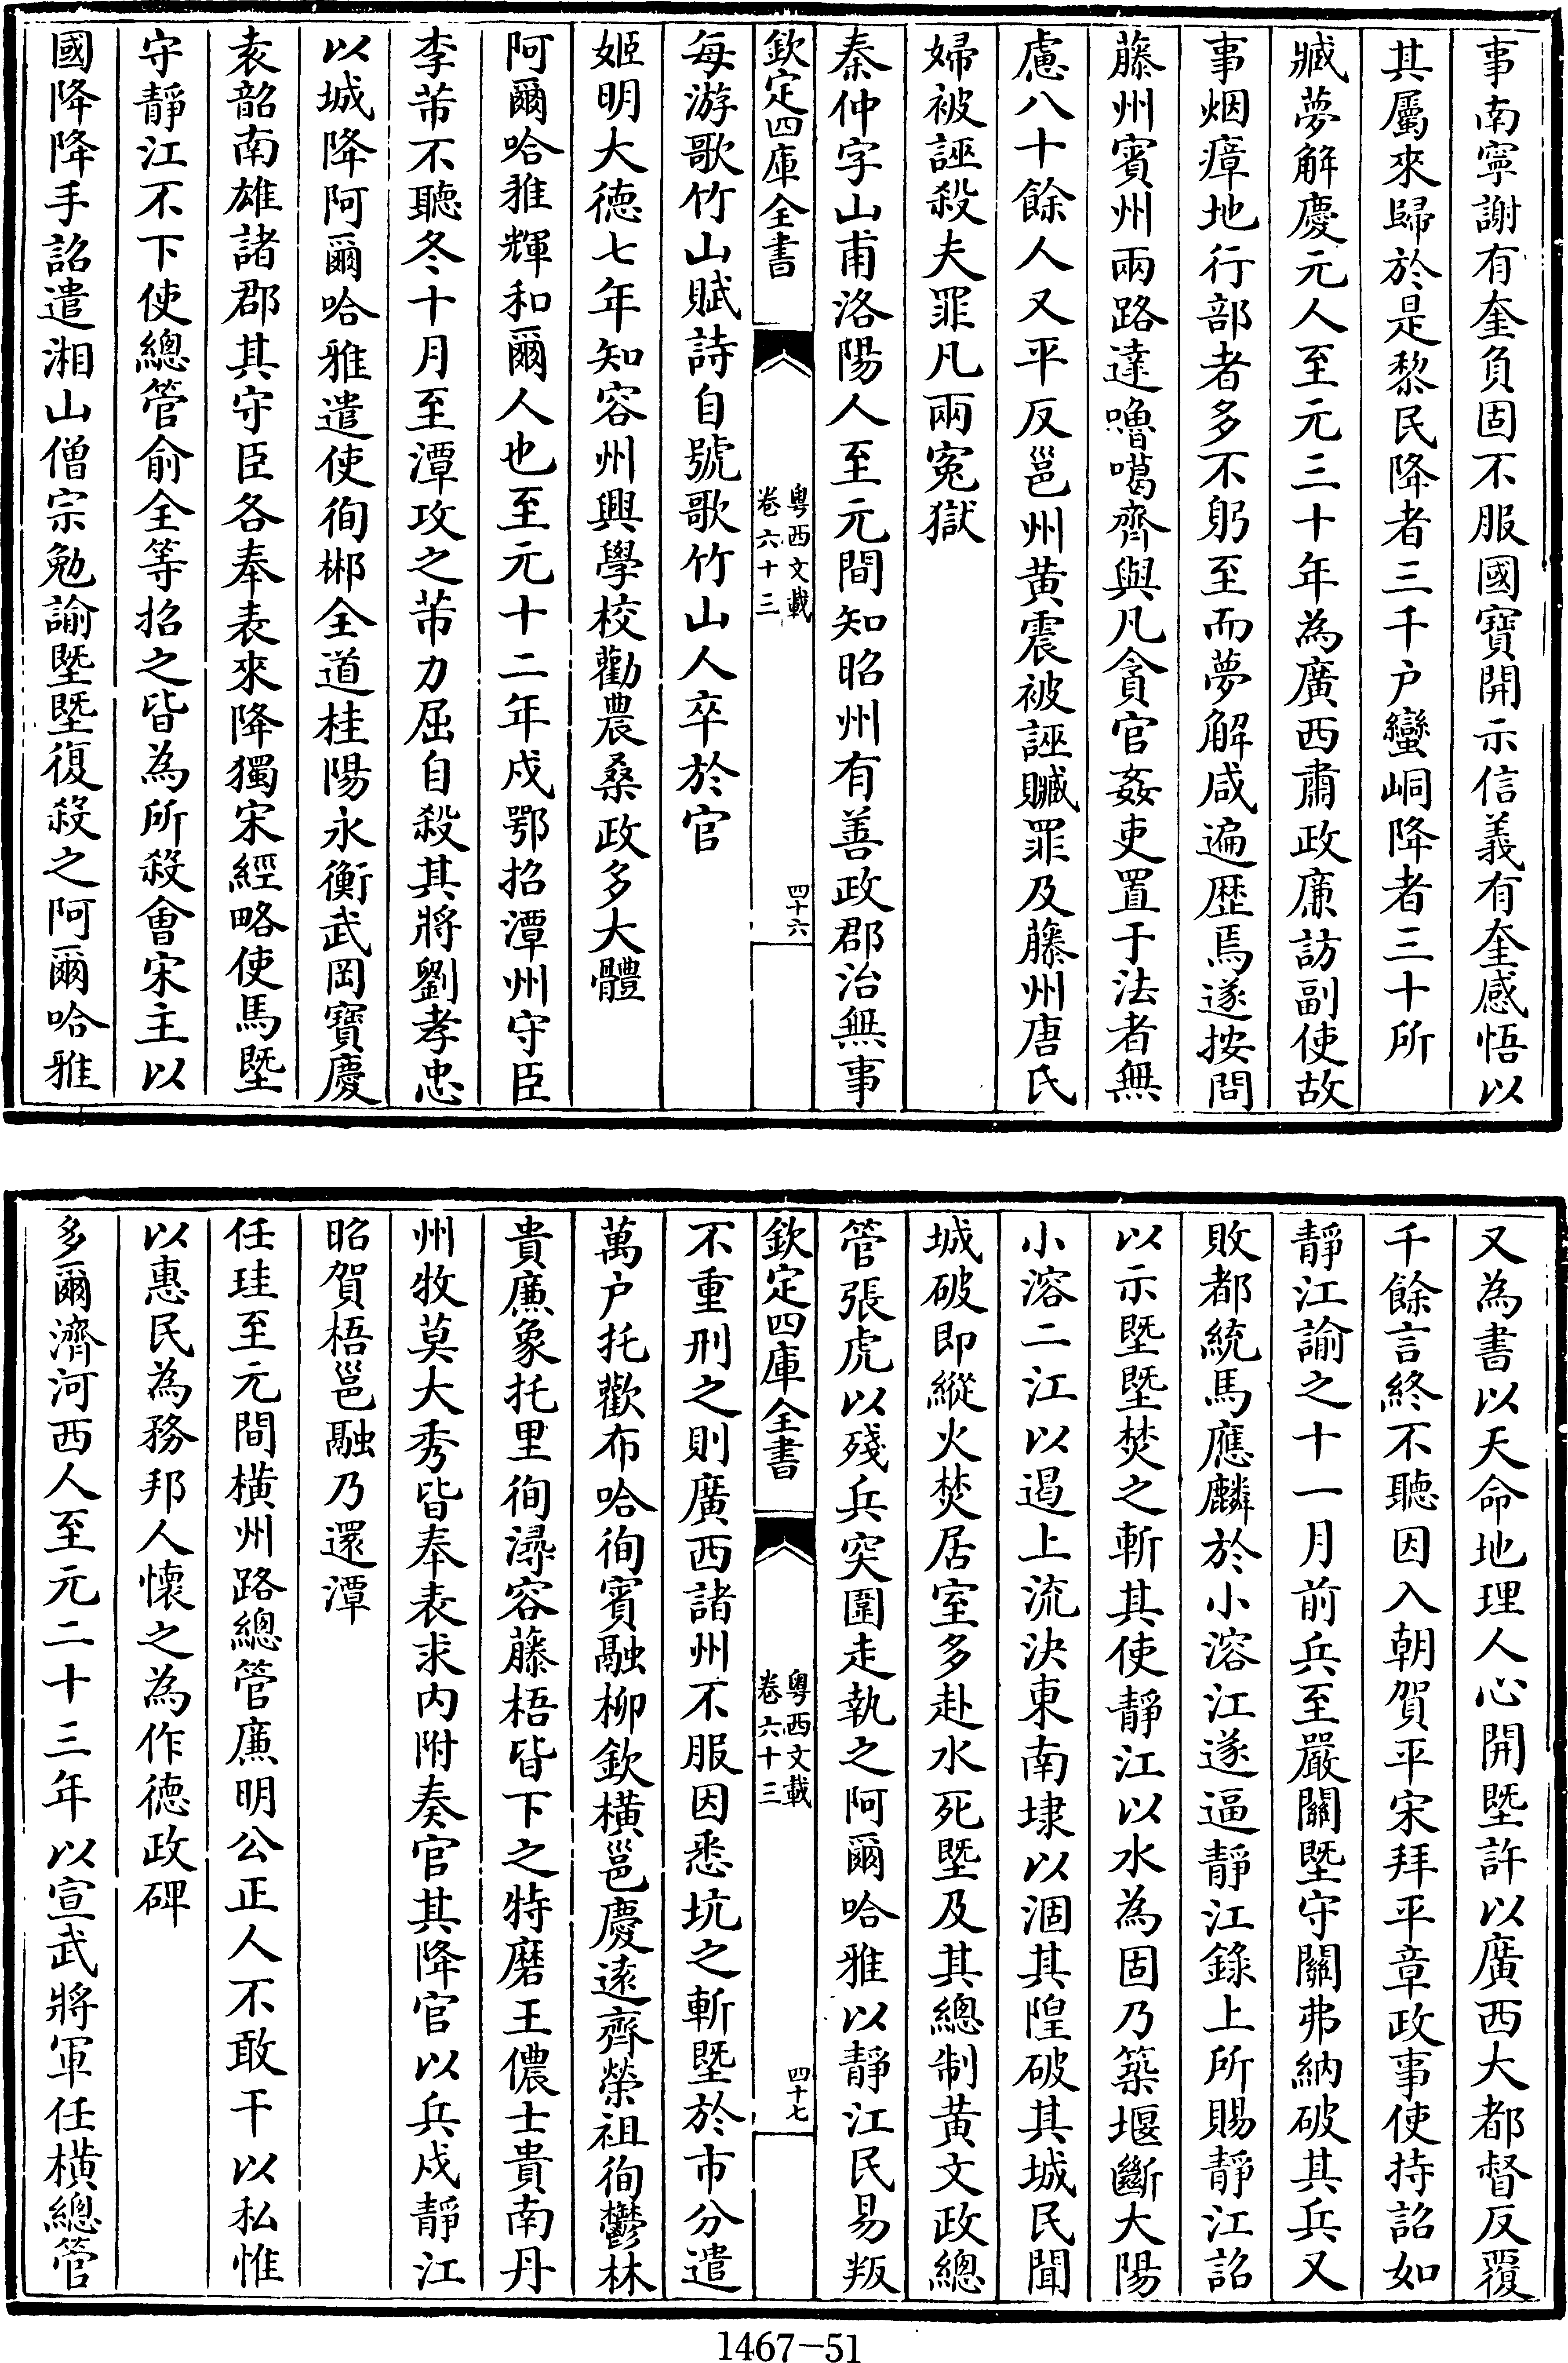 事南寧謝有奎負固不服國寶開示信義有奎感悟以
其屬來歸於是黎民降者三千户蠻峒降者三十所
臧夢解慶元人至元三十年為廣西肅政廉訪副使故
事烟瘴地行部者多不躬至而夢解咸遍歴焉遂按問
藤州賓州兩路達嚕噶齊與凡貪官姦吏置于法者無
慮八十餘人又平反邕州黄震被誣贓罪及藤州唐氏
婦被誣殺夫罪凡兩寃獄
秦仲字山甫洛陽人至元間知昭州有善政郡治無事
欽定四庫全書
粤西文載
卷六十三
四十六
每游歌竹山賦詩自號歌竹山人卒於官
姬明大徳七年知容州興學校勸農桑政多大體
阿爾哈雅輝和爾人也至元十二年戍鄂招潭州守臣
李芾不聽冬十月至潭攻之芾力屈自殺其將劉孝忠
以城降阿爾哈雅遣使徇郴全道桂陽永衡武岡寶慶
袁韶南雄諸郡其守臣各奉表來降獨宋經略使馬塈
守靜江不下使總管俞全等招之皆為所殺會宋主以
國降降手詔遣湘山僧宗勉諭塈塈復殺之阿爾哈雅
又為書以天命地理人心開塈許以廣西大都督反覆
千餘言終不聽因入朝賀平宋拜平章政事使持詔如
靜江諭之十一月前兵至嚴關塈守關弗納破其兵又
敗都統馬應麟於小溶江遂逼靜江錄上所賜靜江詔
以示塈塈焚之斬其使靜江以水為固乃築堰斷大陽
小溶二江以遏上流決東南埭以涸其隍破其城民聞
城破即縱火焚居室多赴水死塈及其總制黄文政總
管張虎以殘兵突圍走執之阿爾哈雅以靜江民易叛
欽定四庫全書
粤西文載
卷六十三
四十七
不重刑之則廣西諸州不服因悉坑之斬塈於市分遣
萬户托歡布哈徇賓融柳欽横邕慶逺齊榮祖徇鬱林
貴廉象托里徇潯容藤梧皆下之特磨王儂士貴南丹
州牧莫大秀皆奉表求内附奏官其降官以兵戍靜江
昭賀梧邕融乃還潭
任珪至元間横州路總管廉明公正人不敢干以私惟
以惠民為務邦人懷之為作徳政碑
多爾濟河西人至元二十三年以宣武將軍任横總管
1467-51